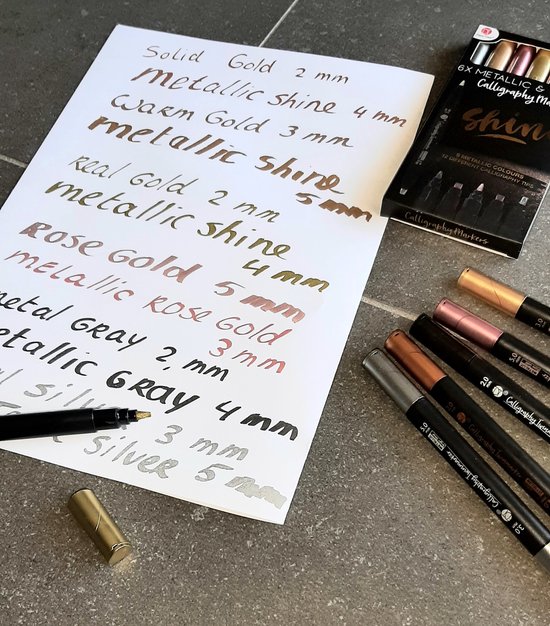 Solid Gold 2 mm
metallic shine 4 mm
warm Gold 3 mm
metallic shine
5 mm
Real Gold 2 mm
metallic shine
4 mm
Rose Gold 5 mm
metallic Rose Gold
3 mm
metal Gray
2 mm
metallic Gray 4 mm
silver 3 mm
silver 5 mm
6X METALLIC &
Calligraphy
Shin
6 METALLIC COLOURS
12 DIFFERENT CALLIGRAPHY TIPS
Calligraphy Markers